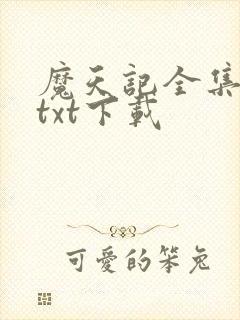 魔天記全集
txt下載
可愛的笨兔